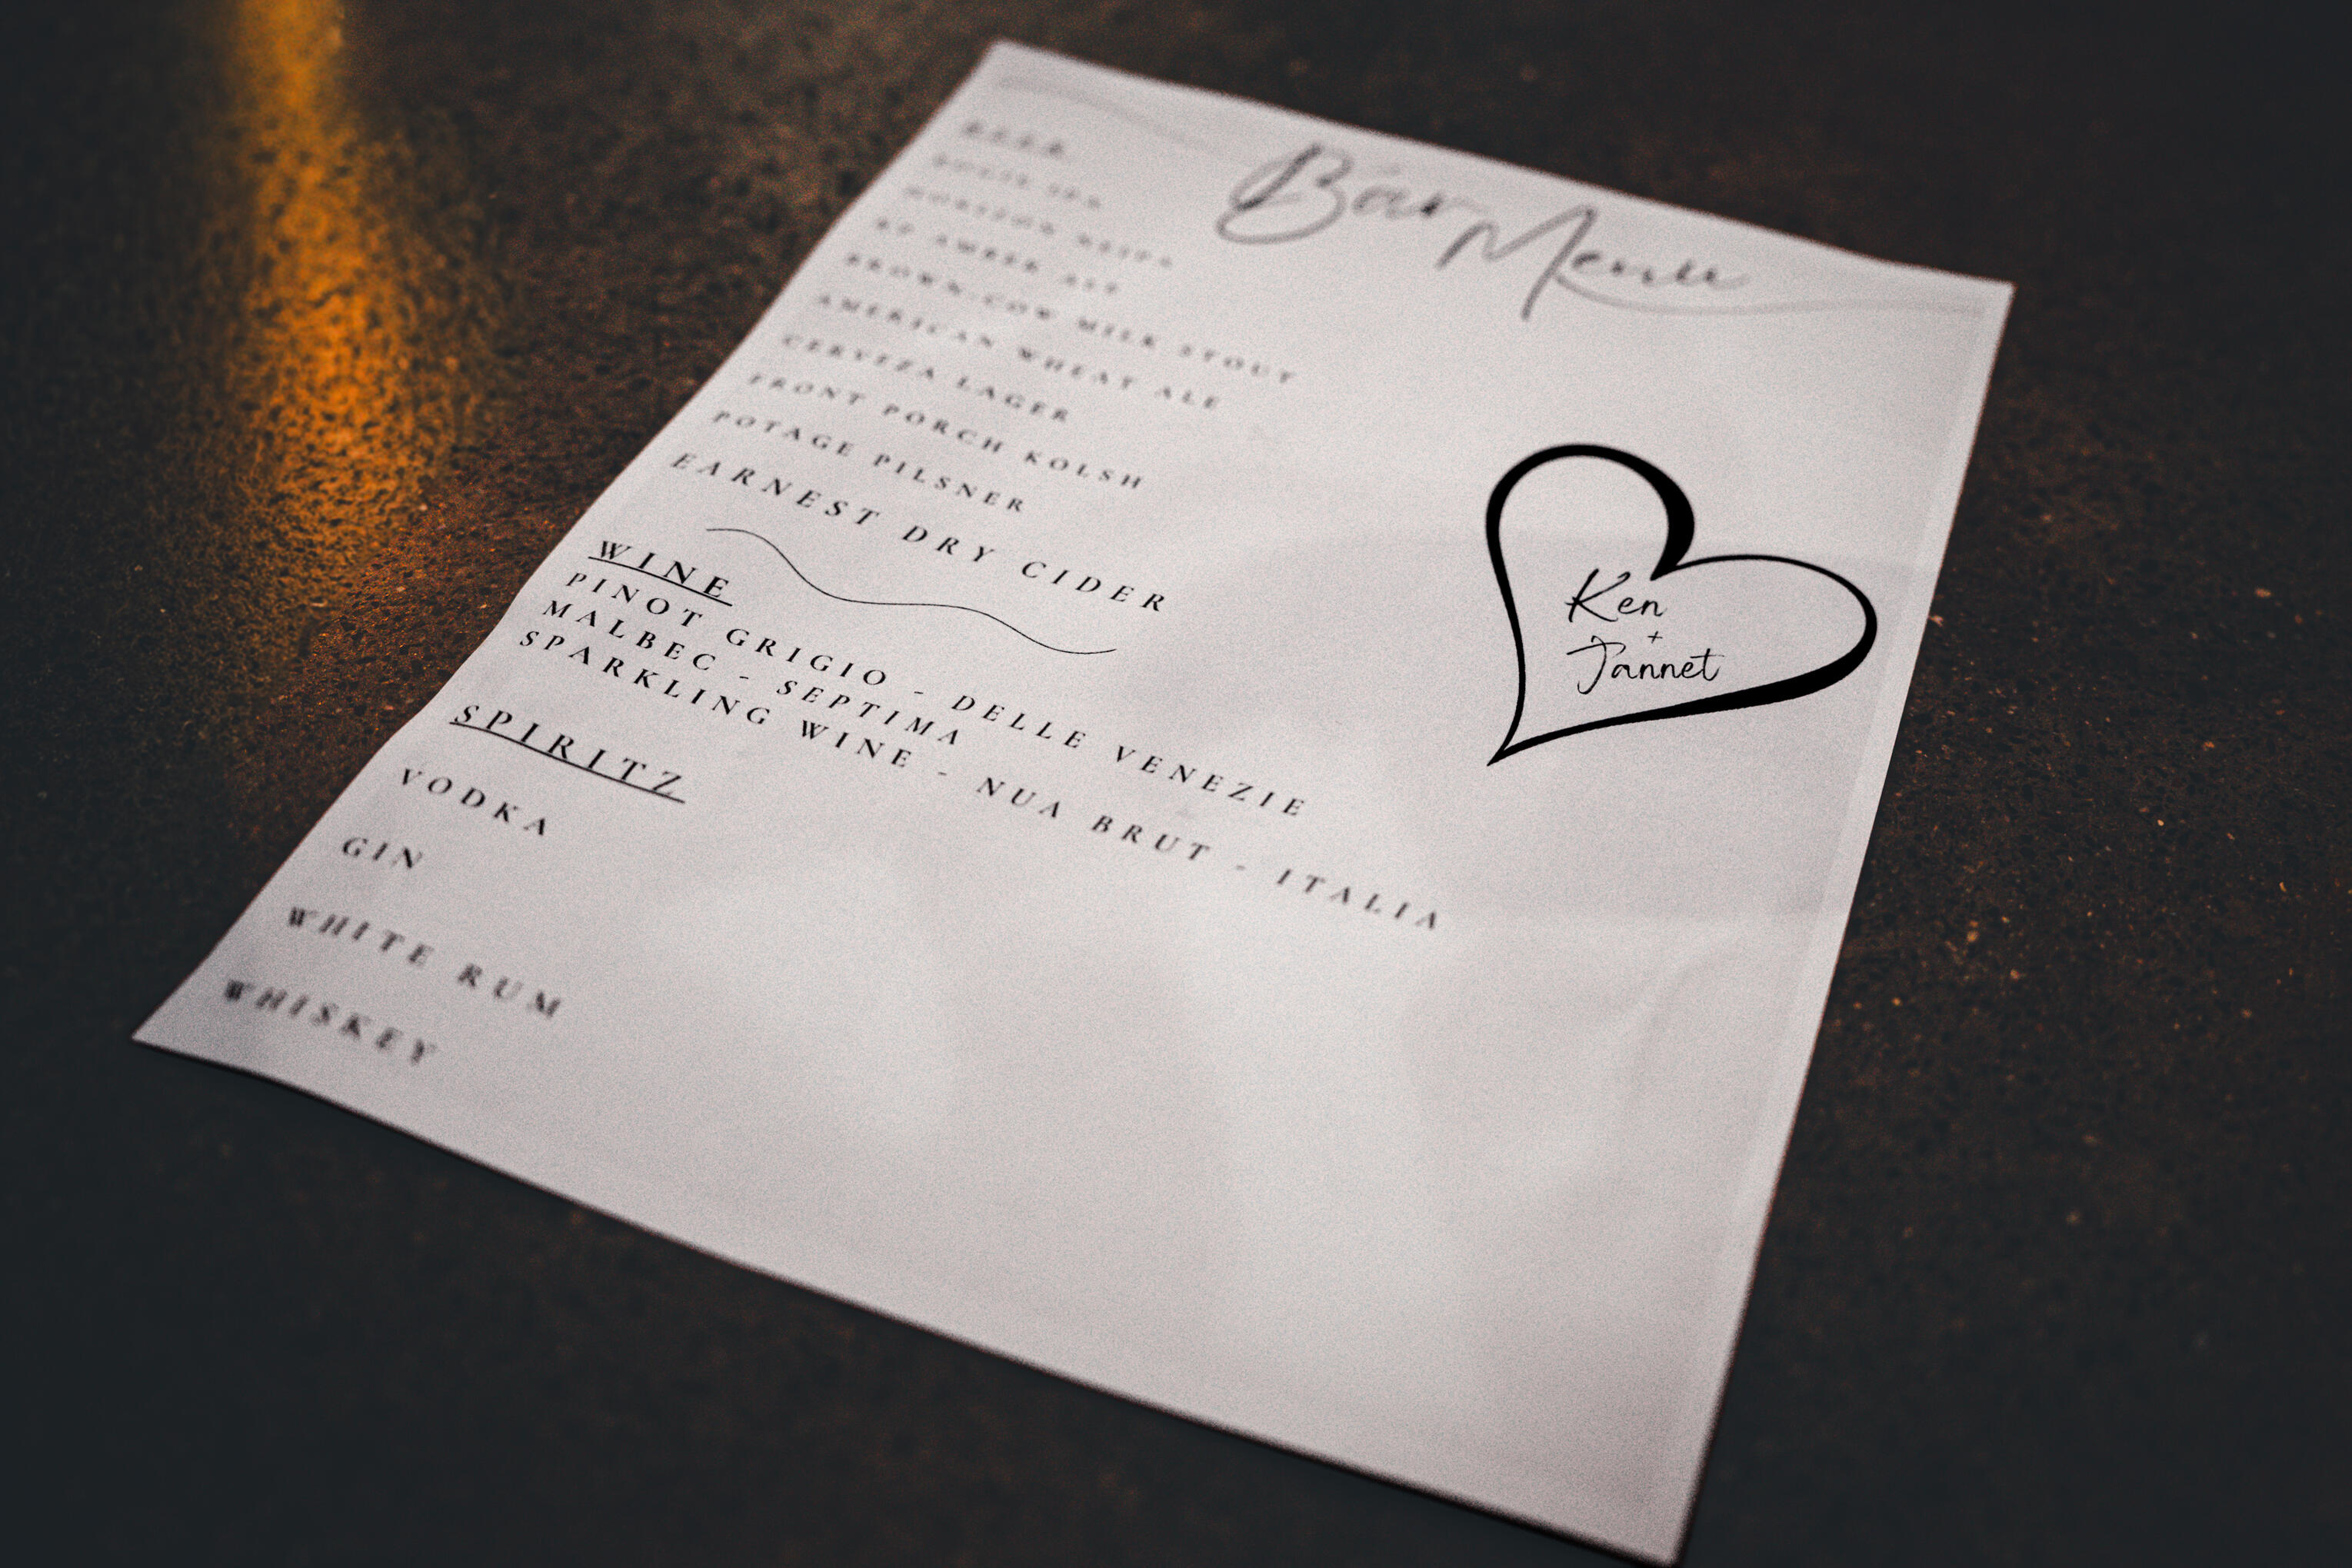 Bar Menu
BEER
AMBER ALE
BROWN COW MILK STOUT
AMERICAN WHEAT ALE
CERVEZA LAGER
FRONT PORCH KOLSH
POTAGE PILSNER
EARNEST DRY CIDER
WINE
PINOT GRIGIO - DELLE VENEZIE
MALBEC - SEPTIMA
SPARKLING WINE - NUA BRUT - ITALIA
SPIRITZ
VODKA
GIN
WHITE RUM
WHISKEY
Ken
+
Jannet